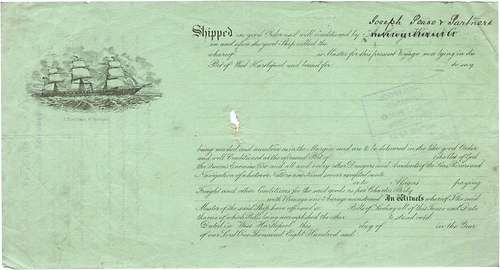 Joseph Pease & Partners
Shipped in good Order and well Conditioned by
in and upon the good Ship called the
whereof is Master for this present Voyage now lying in the
Port of West Hartlepool and bound for to say
being marked and numbered as in the Margin and are to be delivered in the like good Order
and well Conditioned at the aforesaid Port of (the Act of God
the Queen's Enemies Fire and all and every other Dangers and Accidents of the Seas, Rivers and
Navigation of whatever Nature and kind soever excepted) unto
or to Assigns paying
Freight and other Conditions for the said goods as per Charter Party
with Primage and Average accustomed In Witness whereof the said
Master of the said Ship hath affirmed to Bills of Lading all of this Tenor and Date
the one of which Bills being accomplished the other to stand void
Dated in West Hartlepool this day of in the Year
of our Lord One Thousand Eight Hundred and